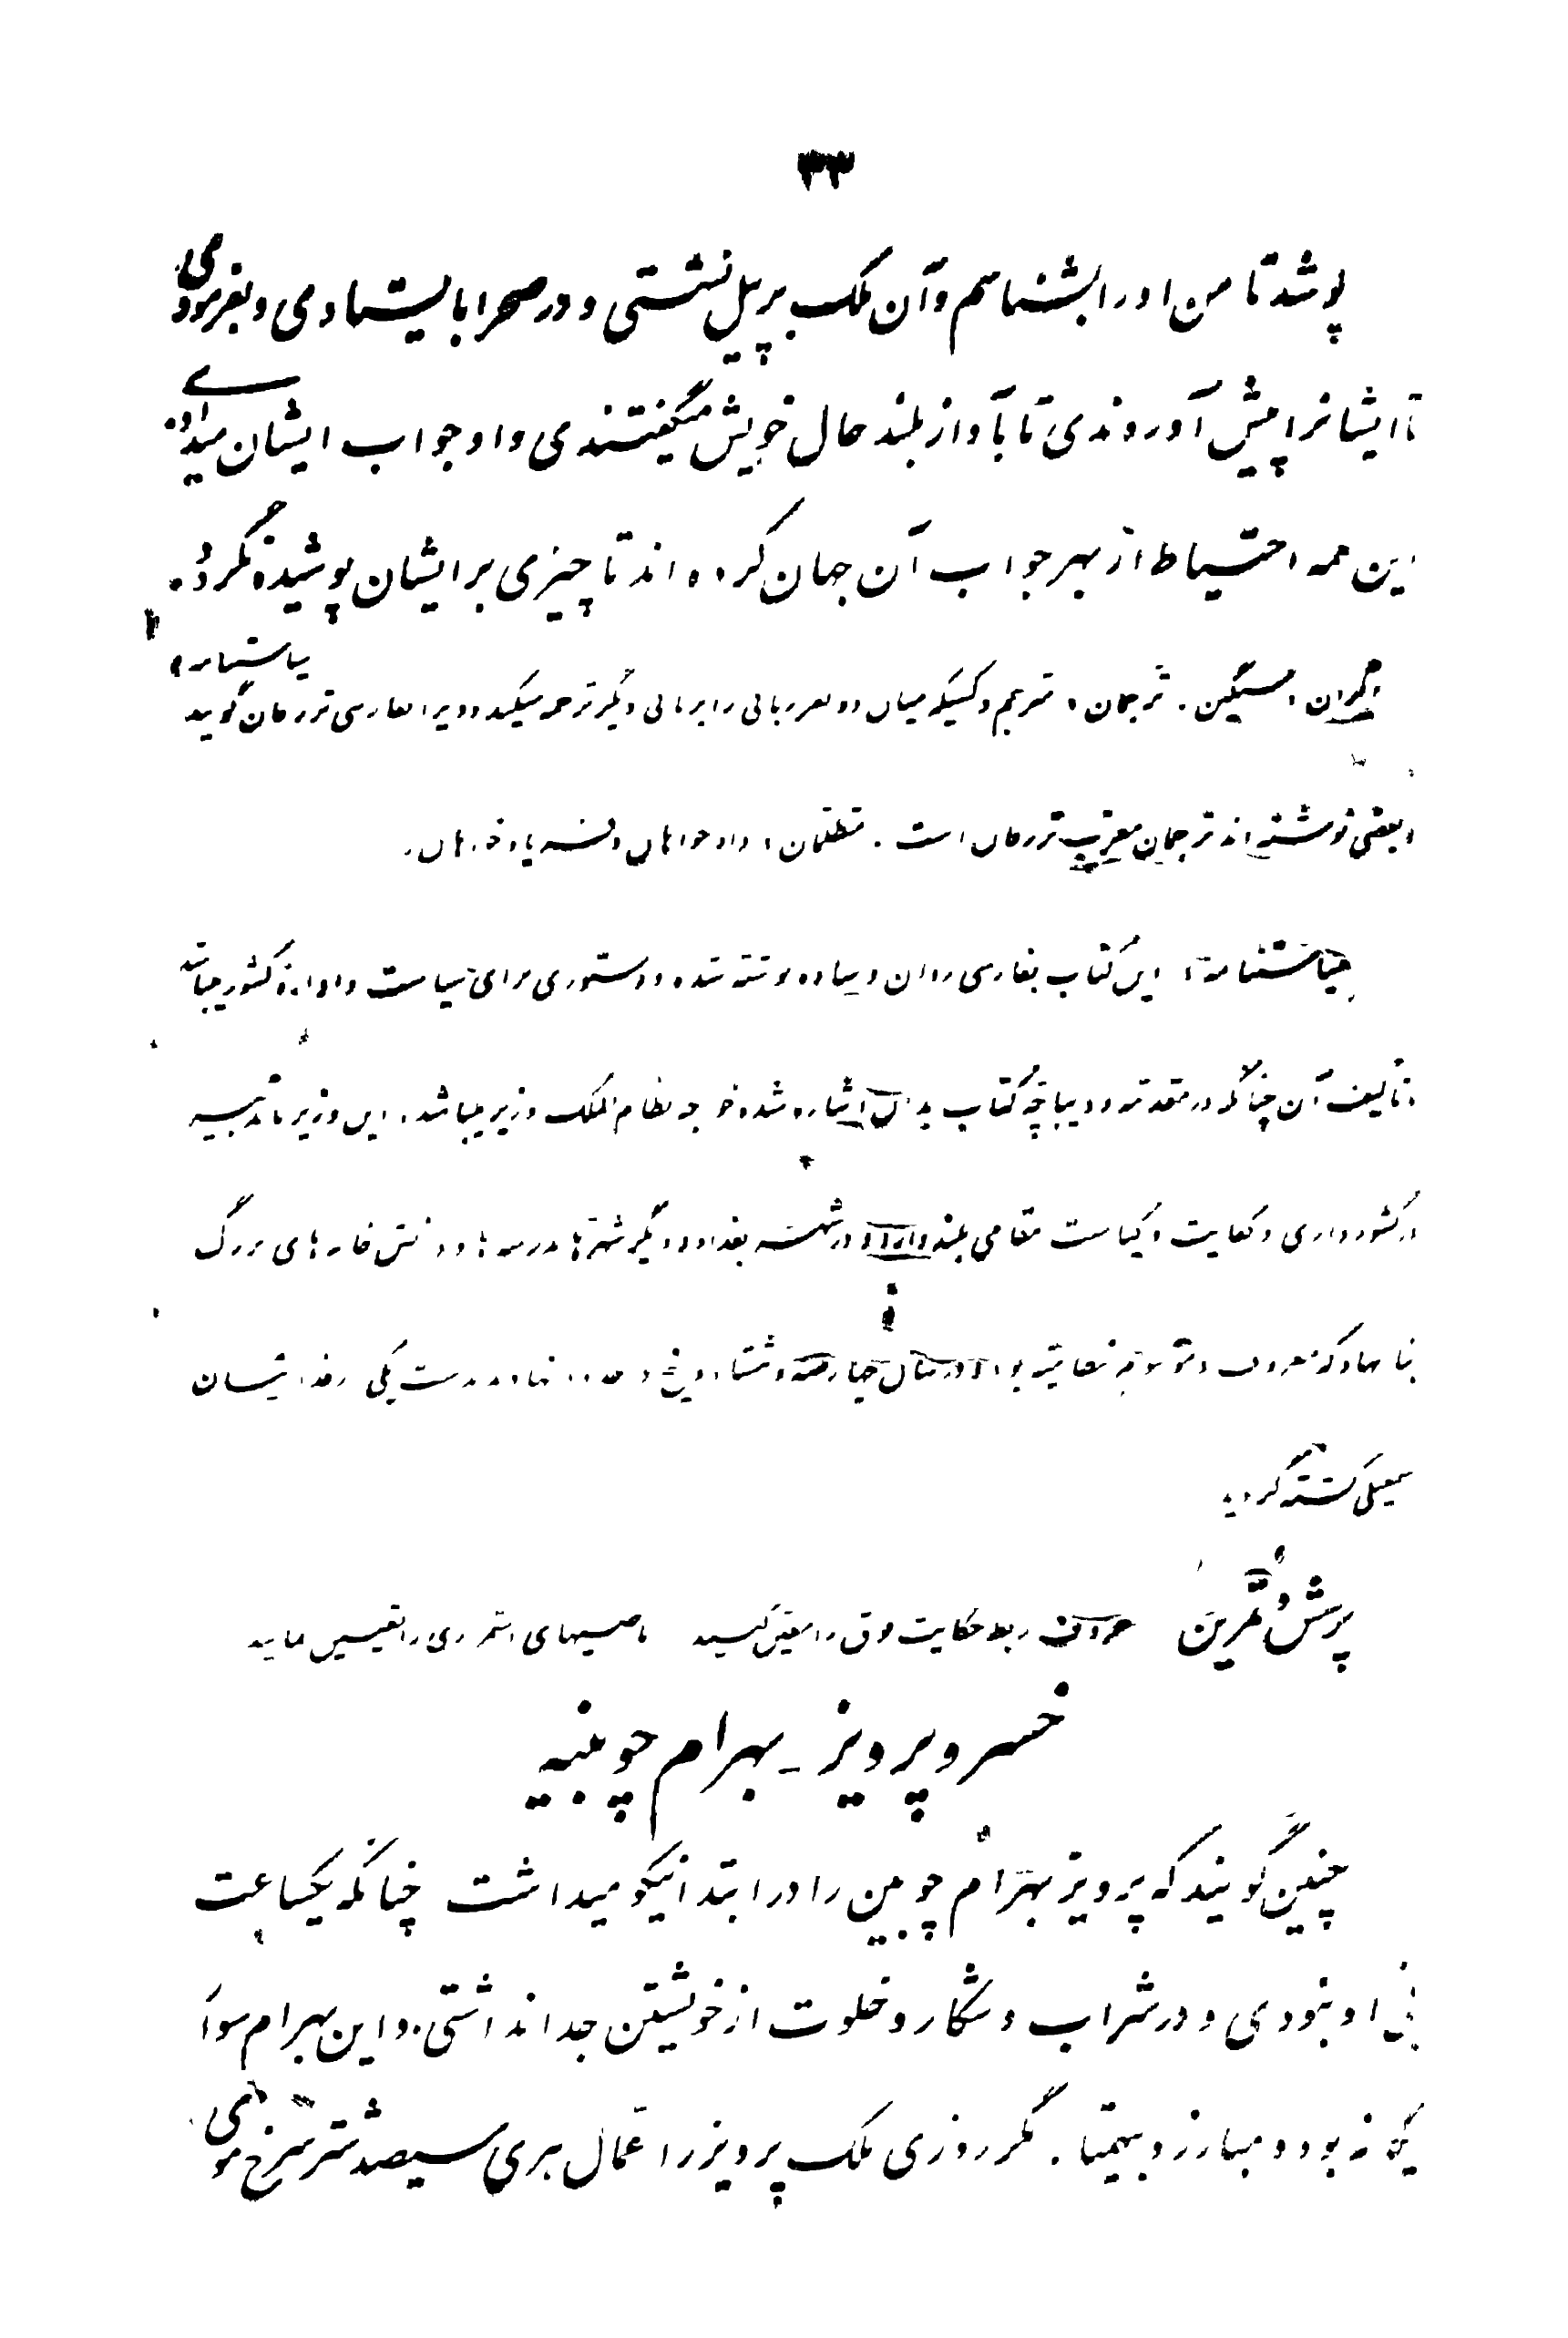 ۳۳
پوشد تا من او را بشناسم و آن ملک بر پیل نشستی و در صحرا بایستادی و بفرمودی
تا ایشانرا پیش آوردندی تا بآواز بلند حال خویش میگفتندی و او جواب ایشان میدادی
این همه احتیاط از بهر جواب آن جهان کرده اند تا چیزی بر ایشان پوشیده نگردد.
گران ، سنگین . ترجمان ، مترجم و کسیکه میان دو نفر زبانی را بزبانی دیگر ترجمه میکند و ویرا بفارسی ترزبان گویند
و بعضی نوشته اند ترجمان معرّب ترزبان است . متظلمان ، دادخواهان و فریادخواهان .
سیاستنامه ، این کتاب بفارسی روان و ساده نوشته شده و دستوری برای سیاست و ادارهٔ کشور میباشد
تألیف آن چنانکه در مقدمه و دیباچهٔ کتاب بدان اشاره شده خواجه نظام الملک وزیر میباشد . این وزیر با تدبیر
در کشورداری و کفایت و کیاست مقامی بلند دارد و در شهر بغداد و دیگر شهرها مدرسه ها و دانش خانه های بزرگ
بنا نهاد که معروف و موسوم به نظامیه بود و در سال چهارصد و هشتاد و پنج در نهاوند بدست یکی از فدائیان
اسمعیلی کشته گردید
پرسش و تمرین حروف ربط حکایت فوق را معین کنید ماضیهای استمراری را تعیین نمایید
خسرو پرویز ـ بهرام چوبینه
چنین گویند که پرویز بهرام چوبین را در ابتدا نیکو میداشت چنانکه یکساعت
بی او نبودی و در شراب و شکار و خلوت از خویشتن جدا نداشتی . و این بهرام سوار
یگانه بود و مبارز و بیهمتا . مگر روزی ملک پرویز را عمّال هری سیصد شتر سرخ موی